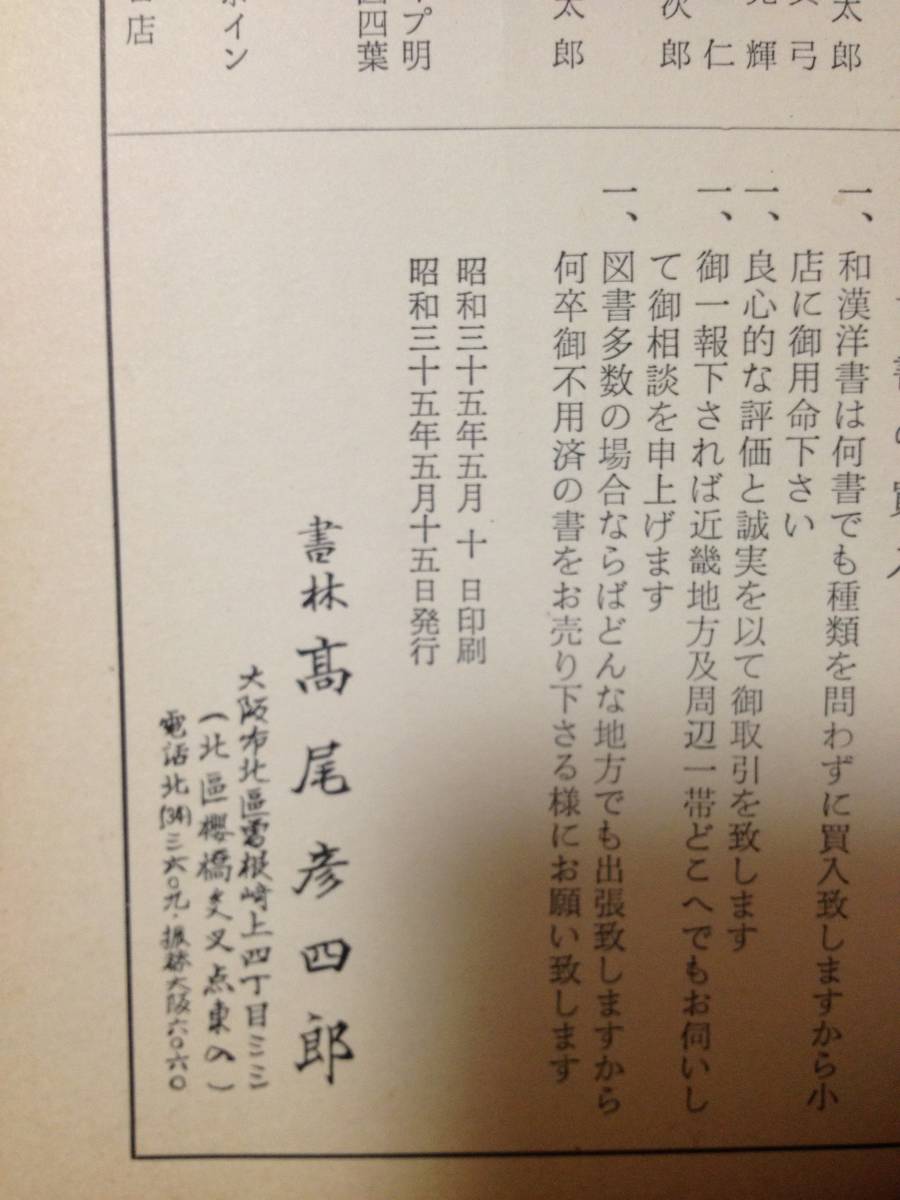 太郎
弓
輝
仁
次郎
太郎
プ明
四葉
イン
店
書の買入
一、和漢洋書は何書でも種類を問わずに買入致しますから小
店に御用命下さい
一、良心的な評価と誠実を以て御取引を致します
一、御一報下されば近畿地方及周辺一帯どこへでもお伺いし
て御相談を申上げます
一、図書多数の場合ならばどんな地方でも出張致しますから
何卒御不用済の書をお売り下さる様にお願い致します
昭和三十五年五月 十 日印刷
昭和三十五年五月十五日発行
書林 高尾彦四郎
大阪市北區曽根崎上四丁目三三
(北區櫻橋交叉点東入)
電話北(34)三六〇九・振替大阪六〇六〇